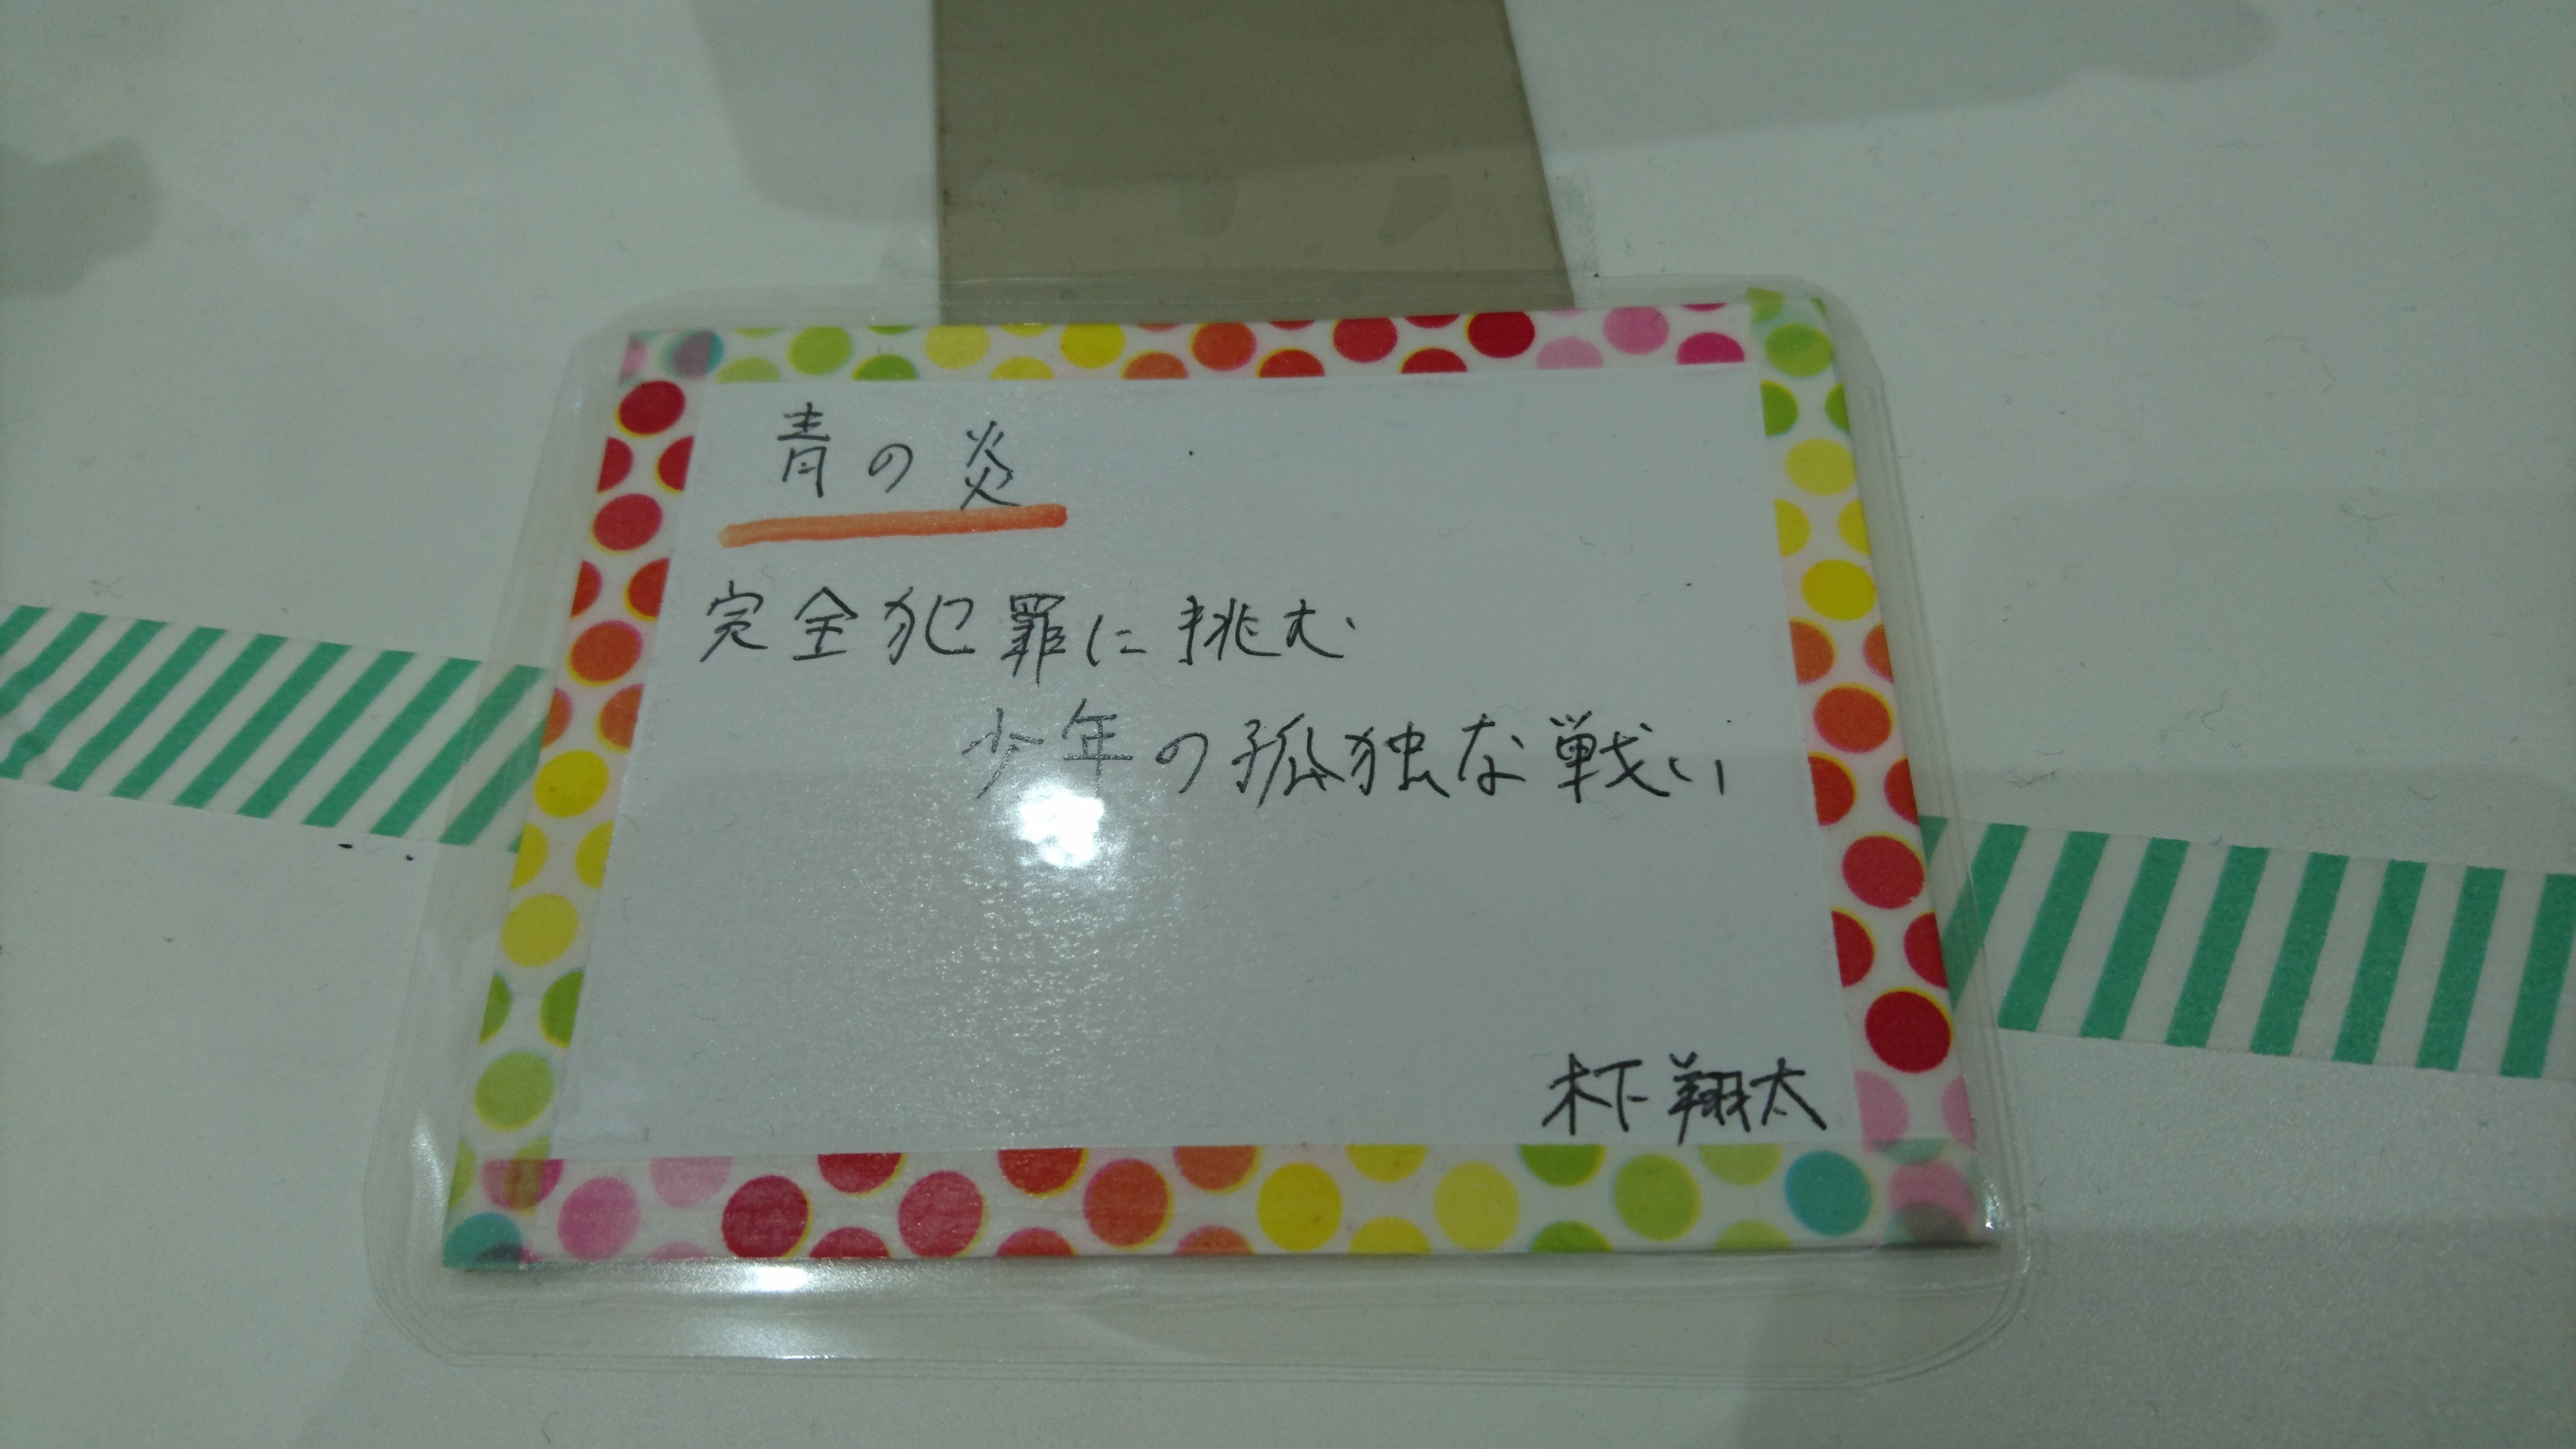 青の炎
完全犯罪に挑む
少年の孤独な戦い
木下翔太